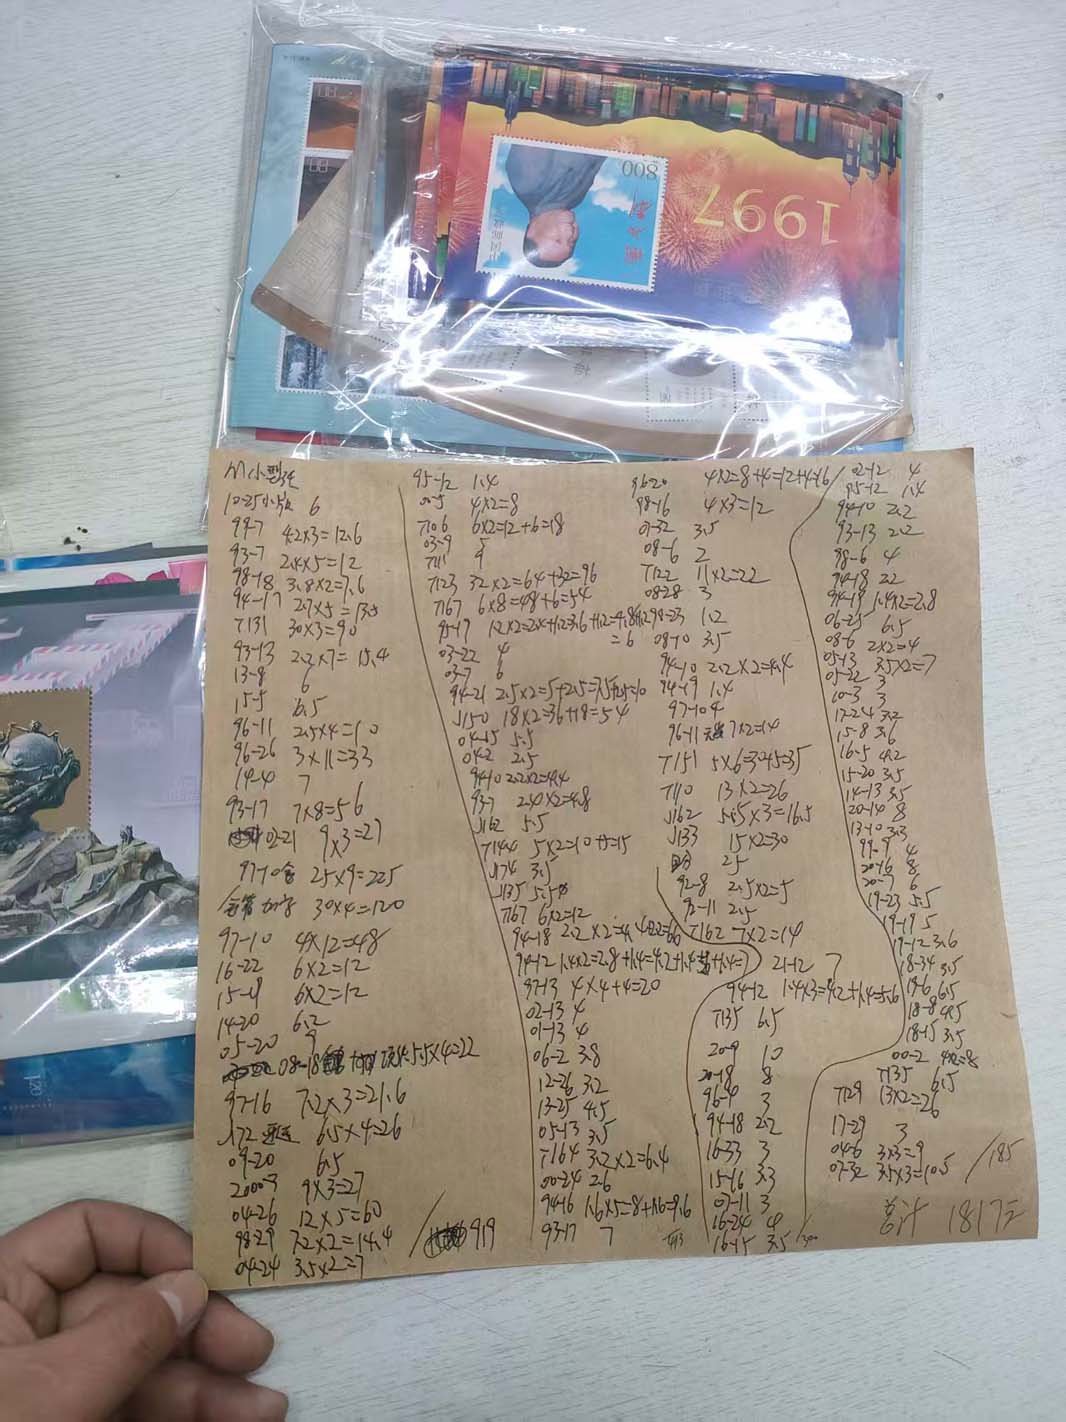 1997
800
M小型张
10-25小版 6
99-7 4.2×3=12.6
93-7 2.4×5=12
98-18 3.8×2=7.6
94-17 2.7×5=13.5
T131 30×3=90
93-13 2.2×7=15.4
13-8 6
15-5 6.5
96-11 2.5×4=10
96-26 3×11=33
14-4 7
93-17 7×8=56
02-21 9×3=27
97-10金 25×9=225
加字 30×4=120
97-10 4×12=48
16-22 6×2=12
15-4 6×2=12
14-20 6.2
05-20 9
08-18 5.5×4=22
97-16 7.2×3=21.6
J172 6.5×4=26
09-20 6.5
2000-3 9×3=27
04-26 12×5=60
98-29 7.2×2=14.4
04-24 3.5×2=7
919
95-12 1.4
00-5 4×2=8
T106 6×2=12+6=18
03-9 5
T111 9
T123 32×2=64+32=96
T167 6×8=48+6=54
95-19
=6
03-22 4
03-7 6
94-21 2.5×2=5+2.5=7.5+2.5=10
J150 18×2=36+18=54
04-15 5.5
04-2 2.5
94-10 2.2×2=4.4
93-7 2.40×2=4.8
J162 5.5
T144 5×2=10+5=15
J174 3.5
J135 5.5
T167 6×2=12
94-18 2.2×2=4.4
94-12 1.4×2=2.8+1.4=4.2+1.4
97-13 4×4+4=20
02-13 4
01-13 4
06-2 3.8
12-26 3.2
13-25 4.5
05-13 3.5
T164 3.2×2=6.4
00-24 2.6
94-16 1.6×5=8+1.6=9.6
93-17 7
96-20 4×2=8+4=12+4=16
98-16 4×3=12
01-32 3.5
08-6 2
T122 11×2=22
08-28 3
98-23 1.2
08-10 3.5
94-10 2.2×2=4.4
94-19 1.4
97-10 4
96-11 7×2=14
T151 5×6=30
T110 13×2=26
J162 5.5×3=16.5
J133 15×2=30
25
92-8 2.5×2=5
92-11 2.5
T162 7×2=14
21-12 7
94-12 1.4×3=4.2+1.4=5.6
T135 6.5
20-9 10
20-18 8
96-4 3
94-18 2.2
16-33 3
15-16 3.3
07-11 3
16-24 4
16-15 3.5
02-12 4
95-12 1.4
94-10 2.2
93-13 2.2
98-6 4
94-18 2.2
94-19 1.4×2=2.8
06-25 6.5
08-6 2×2=4
05-13 3.5×2=7
05-22 3
10-3 3
12-24 3.2
15-8 3.6
16-5 4.2
15-20 3.5
14-13 3.5
20-14 8
13-10 3.3
99-9 4
20-16 8
20-7 6
19-23 5.5
19-19 5
19-12 3.6
18-34 3.5
19-6 6.5
18-8 4.5
18-15 3.5
00-2 4×2=8
T135 6.5
T129 13×2=26
17-29 3
04-6 3×3=9
07-32 3.5×3=10.5
185
总计 1817元